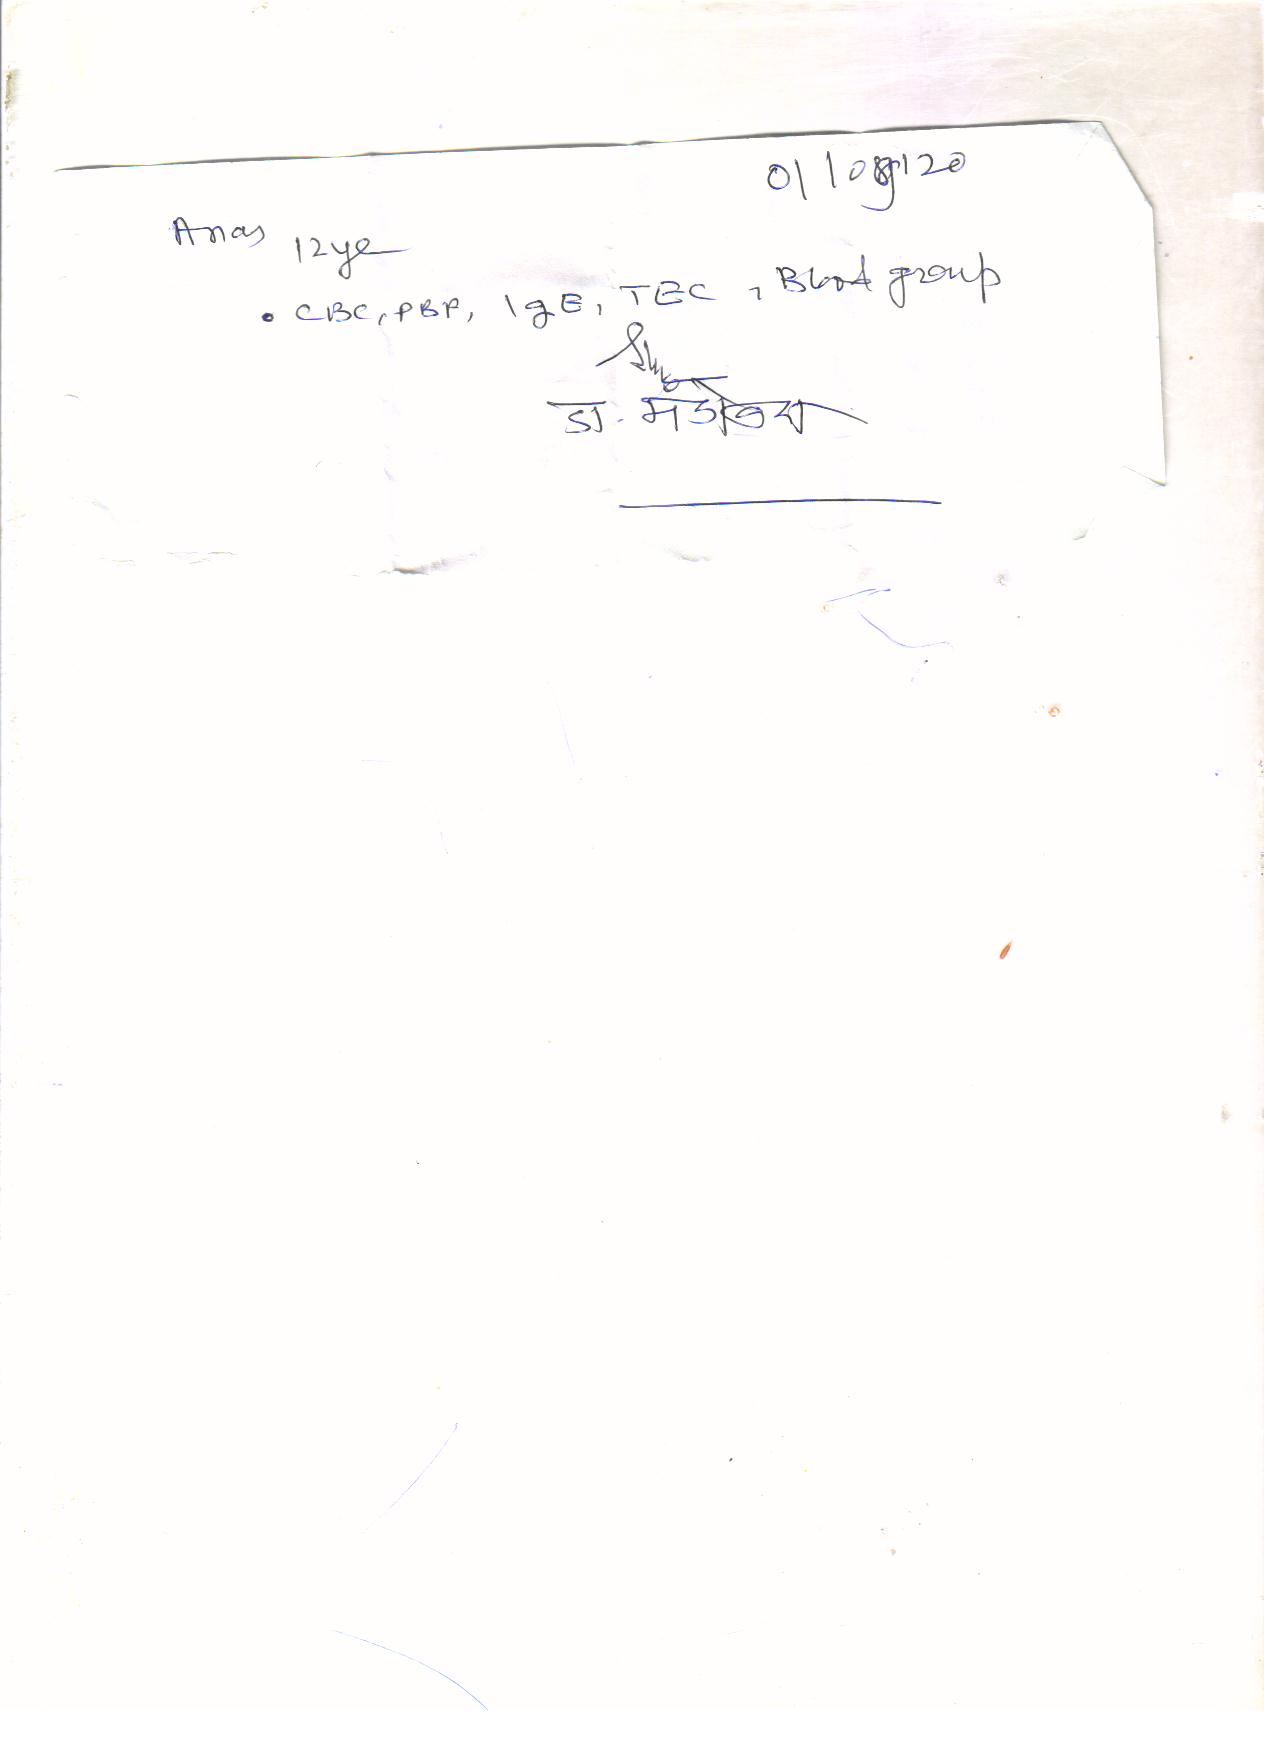 01/08/20
Anas 12ye
• CBC, PBF, IgE, TEC, Blood group
डा.